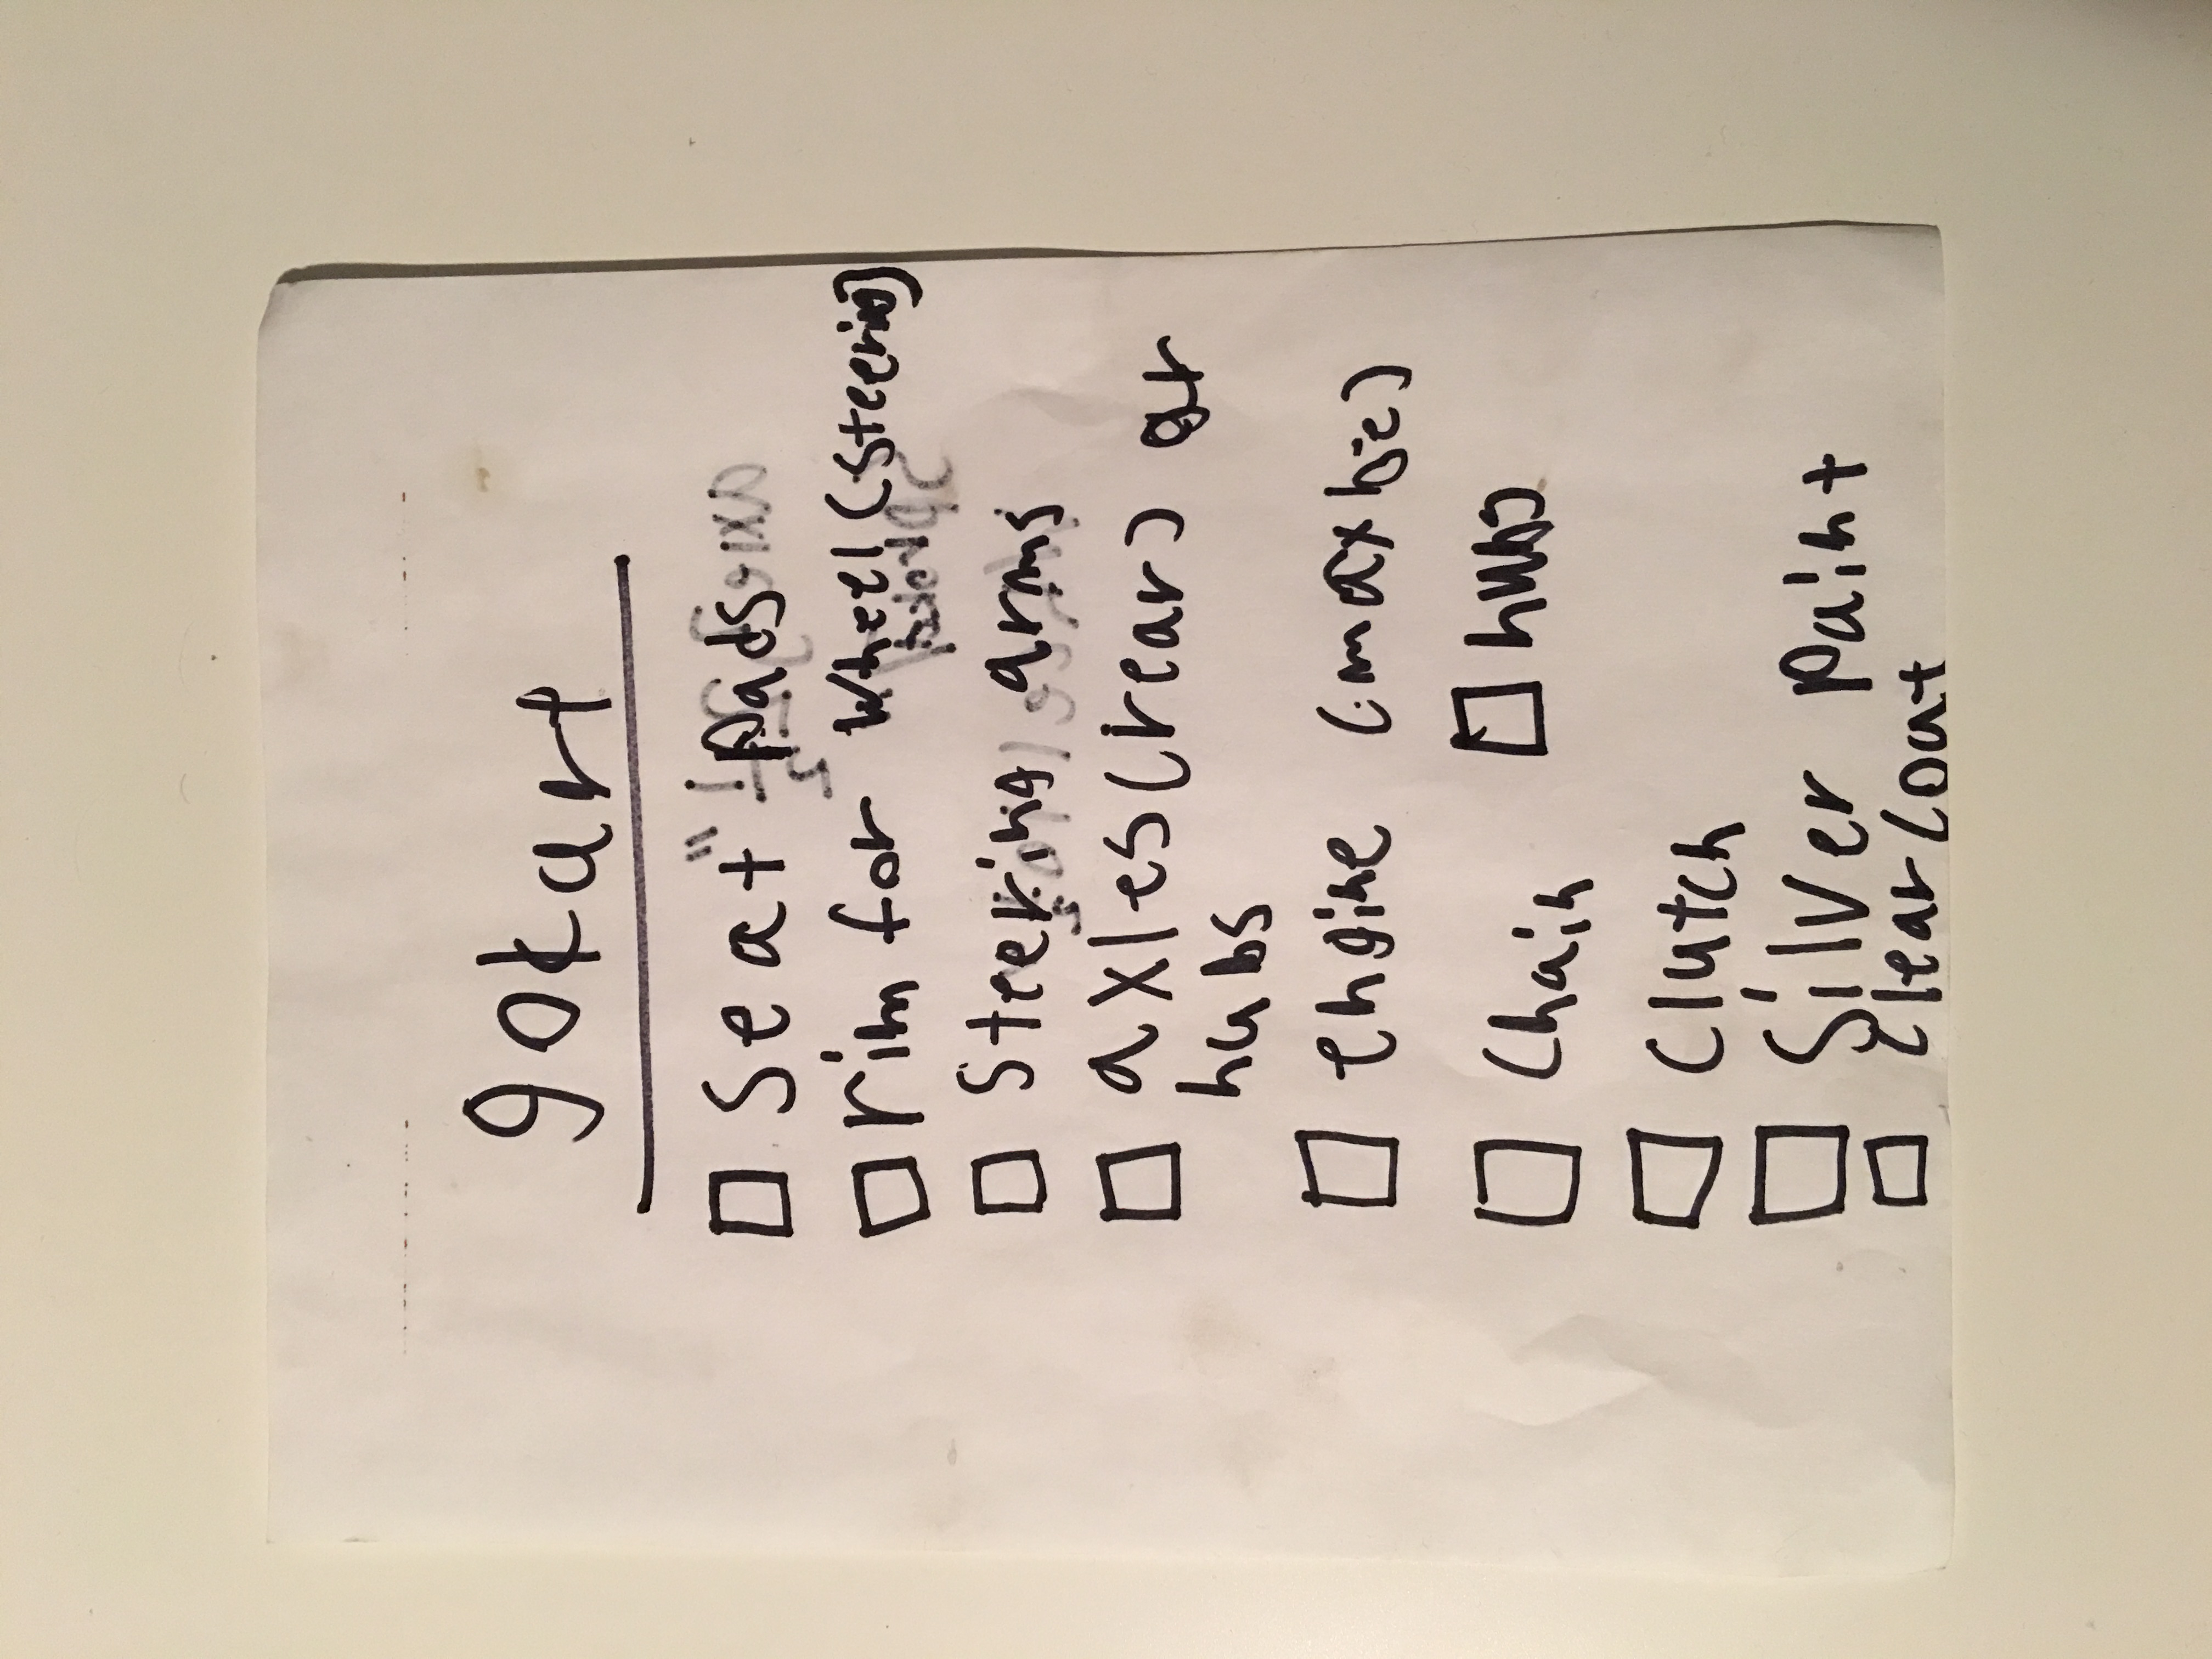 gokart
Seat pads
rim for wheel (steering)
Steering arms
axles (rear) or
hubs
engine (maxbe)
Chain hubs
Clutch
Silver Paint
Clear Coat